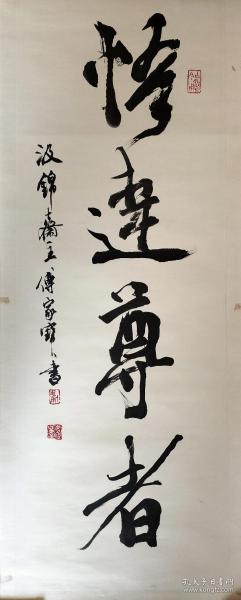 悟達尊者
汲錦齋主傅家寶書
孔夫子旧书网